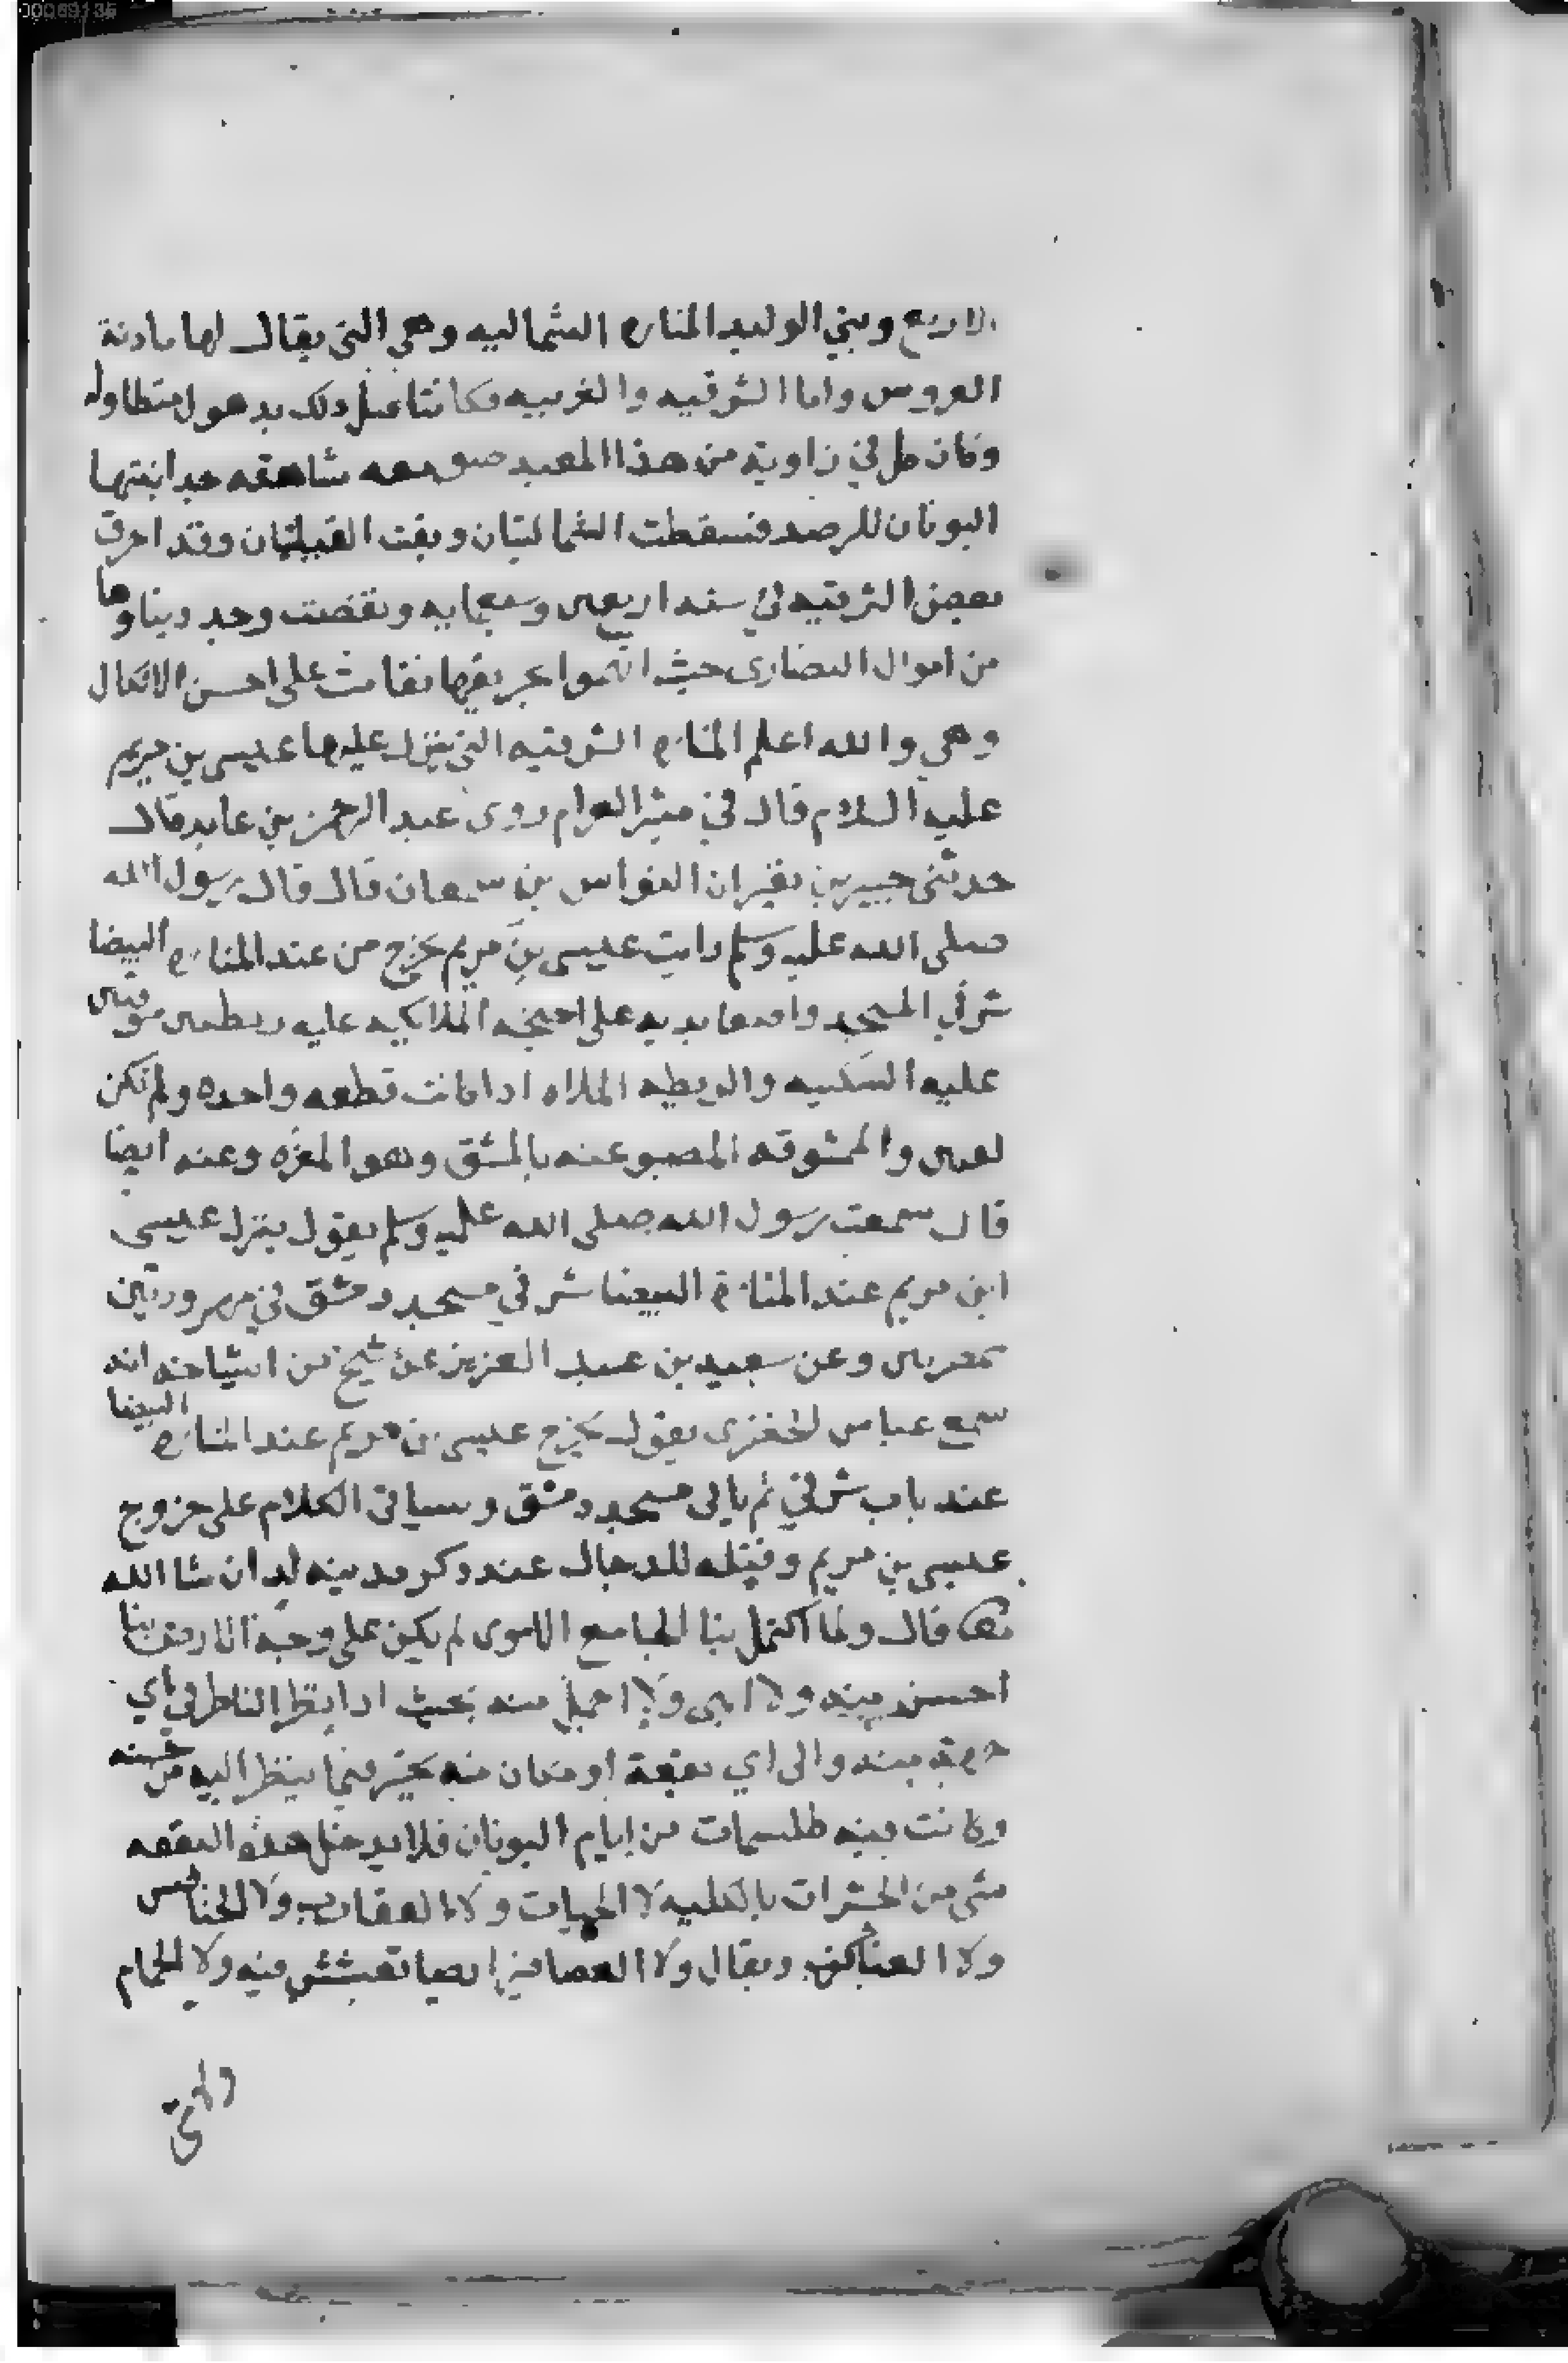 00069135
الاربع وبني الوليد المناره الشماليه وهي التي يقال لها مادنة
العروس واما الشرقيه والغربيه فكانتا قبل ذلك بدهول متطاوله
وكان كل في زاوية من هذا المعبد صومعه شاهقه جدا بنتها
اليونان للرصد فسقطت الشماليتان وبقت القبليتان وقد احرق
بعض الشرقيه في سنه اربعين وسبعمايه ونقضت وجدد بناوها
من اموال النصارى حيث اتهموا بحريقها فقامت على احسن الاتكال
وهي والله اعلم المناره الشرقيه التي ينزل عليها عيسى بن مريم
عليه السلام قال في مثير الغرام روى عبد الرحمن بن عايد قال
حدثنى جبير بن نفير ان النواس بن سمعان قال قال رسول الله
صلى الله عليه وسلم رايت عيسى بن مريم يخرج من عند المناره البيضا
شرقي المسجد واضعا يديه على اجنحه الملايكه عليه ريطتين موقتين
عليه السكنيه والريطه الملاه اذا كانت قطعه واحده ولم تكن
لفقين والممشوقه المصبوغه بالمشق وهو المغره وعنه ايضا
قال سمعت رسول الله صلى الله عليه وسلم يقول ينزل عيسى
ابن مريم عند المناره البيضا شرقي مسجد دمشق في مهرودتين
ممصرتين وعن سعيد بن عبد العزيز عن شيخ من اشياخه انه
سمع عباس الحضرى يقول يخرج عيسى بن مريم عند المناره البيضا
عند باب شرقي ثم ياتى مسجد دمشق وسياتى الكلام على خروج
عيسى بن مريم وقتله للدجال عند ذكر مدينه لد ان شا الله
قال ولما اكتمل بنا الجامع الاموى لم يكن على وجه الارض بنا
احسن منه ولا ابهى ولا اجمل منه بحيث اذا نظر الناظر في اي
جهة منه والى اي بقعة او مكان منه تحير فيما ينظر اليه من حسنه
وكانت فيه طلسمات من ايام اليونان فلا يدخل هذه البقعه
شى من الحشرات بالكليه لا الحيات ولا العقارب ولا الخنافس
ولا العناكب ويقال ولا العصافير ايضا تعشش فيه ولا الحمام